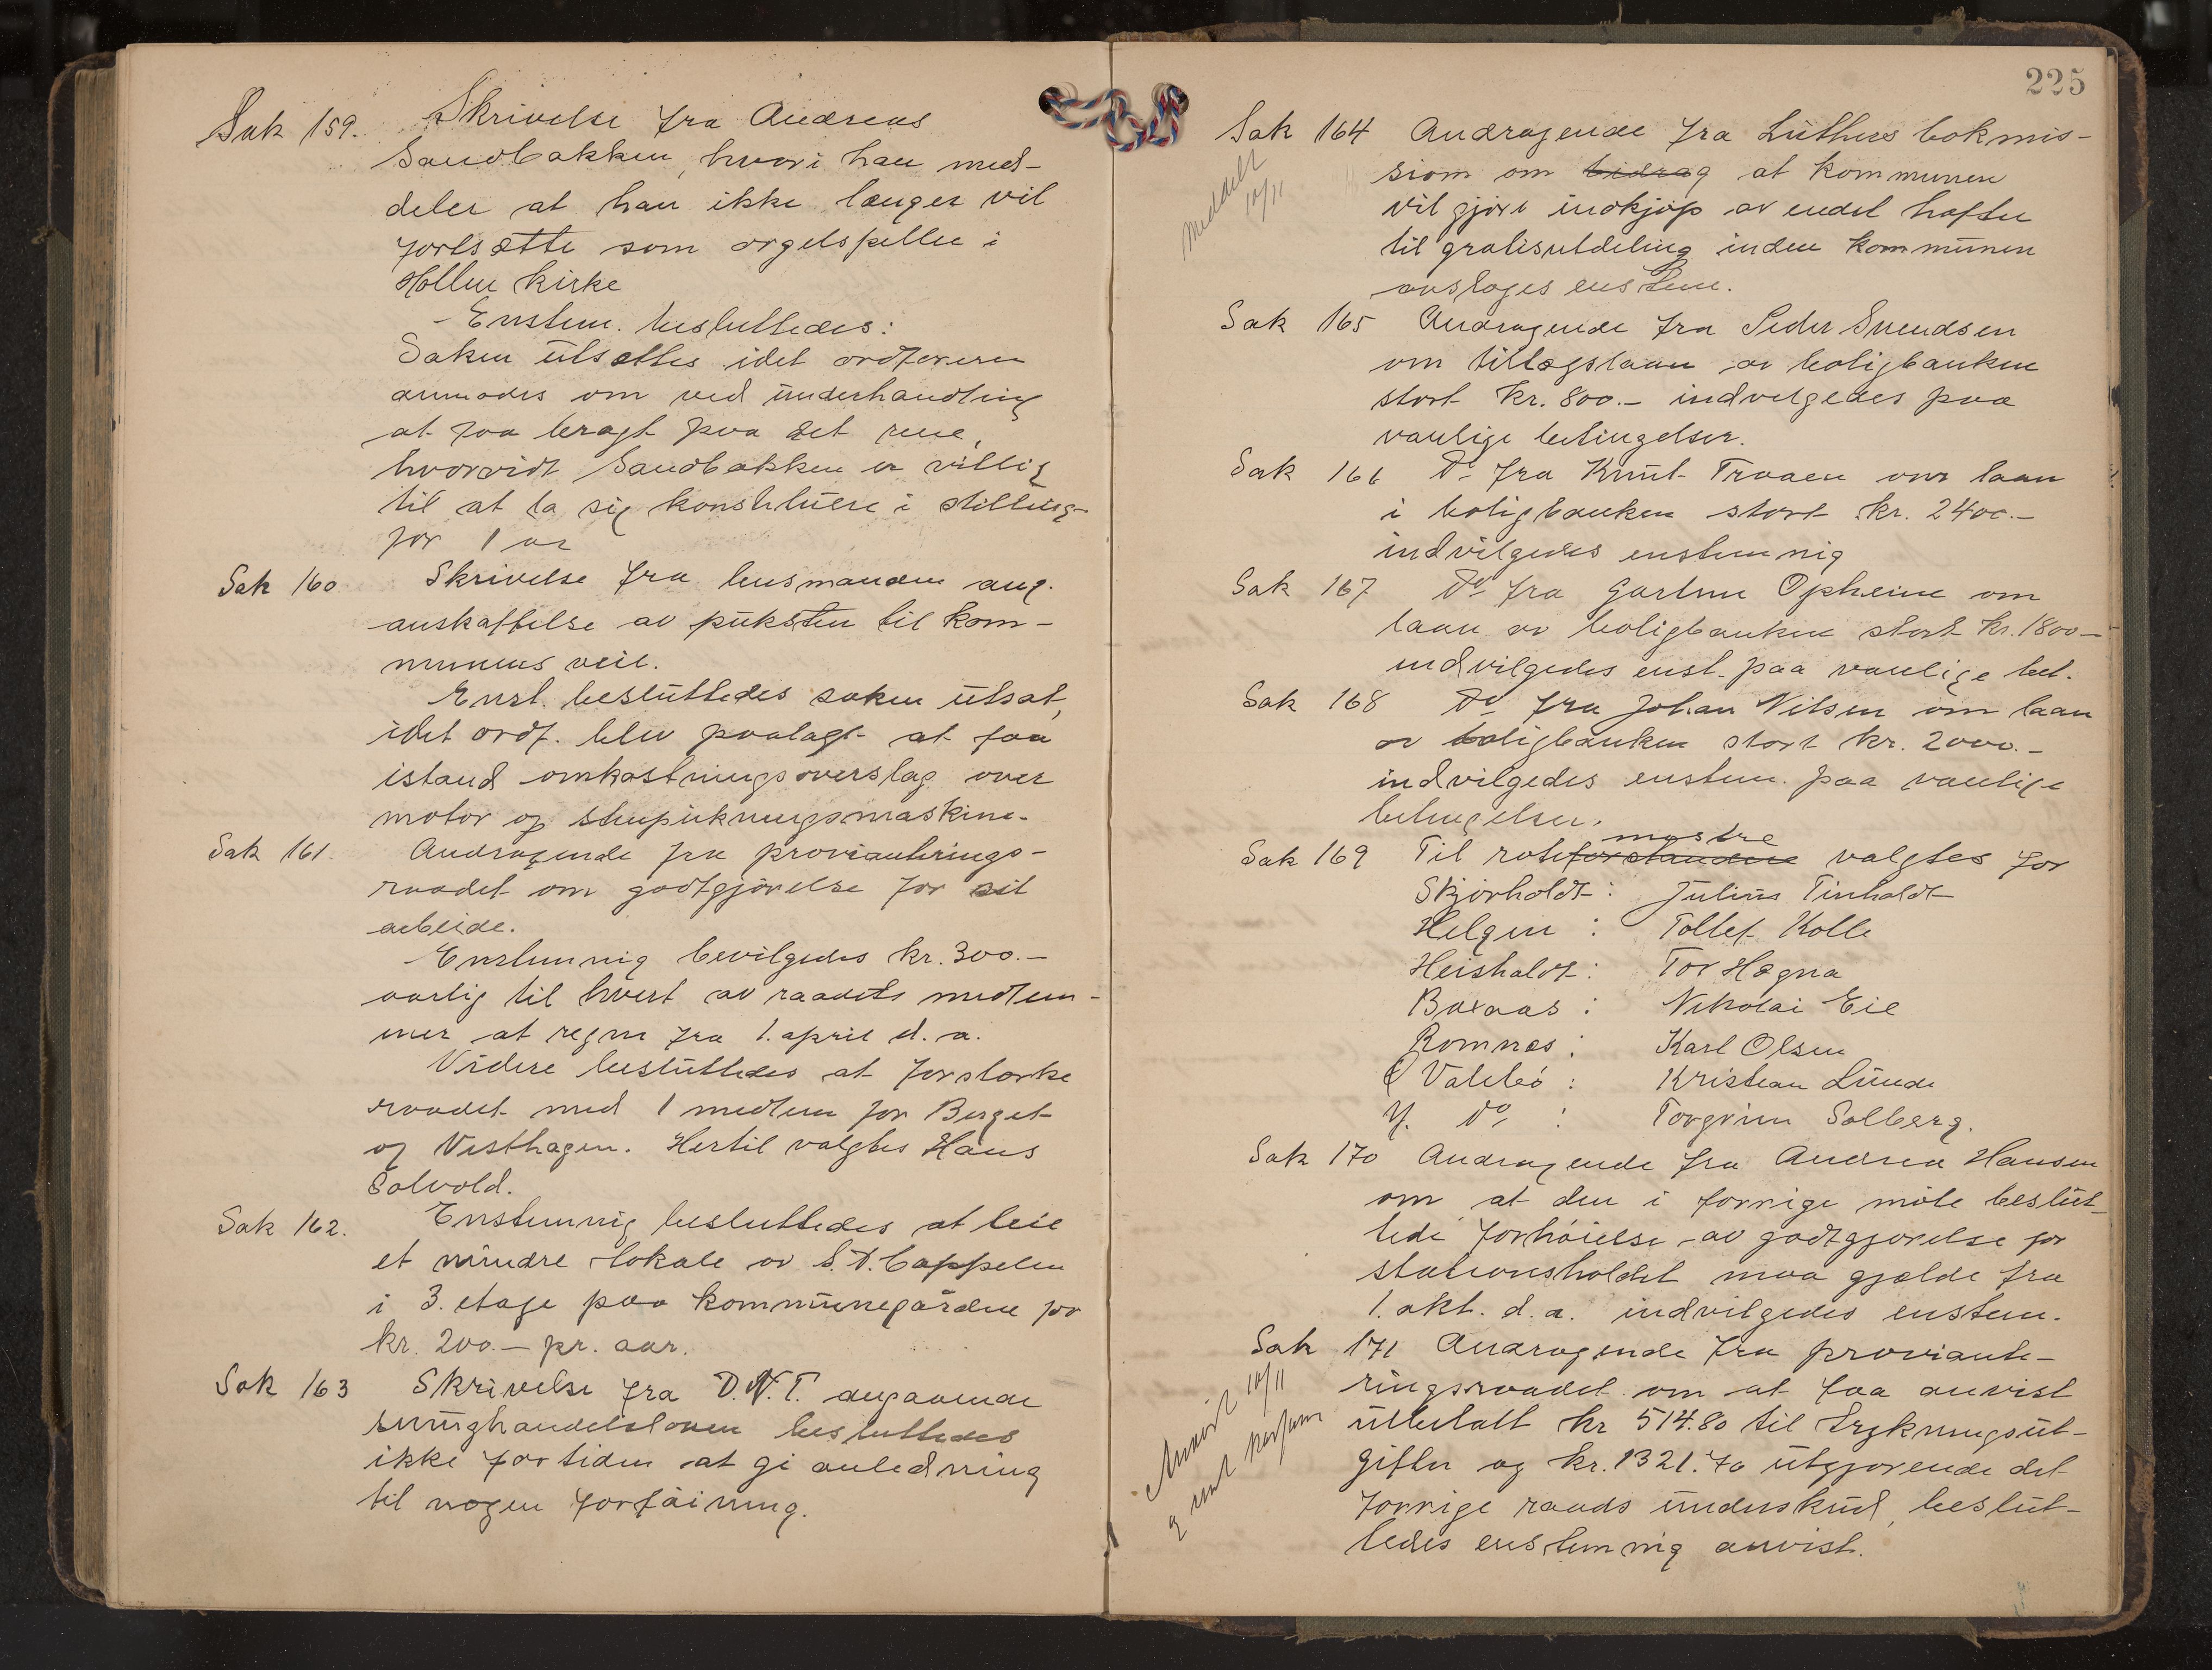 Sak 159. Skrivelse fra Andreas
Sandbakken, hvori han med-
deler at han ikke længer vil
fortsætte som orgelspiller i
Hollen kirke
- Enstem. besluttedes:
Saken utsættes idet ordføreren
anmodes om ved underhandling
at faa bragt paa det rene,
hvorvidt Sandbakken er villig
til at la sig konstituere i stilling
for 1 aar
Sak 160 Skrivelse fra lensmanden ang.
anskaffelse av puksten til kom-
munens veie.
Enst. besluttedes saken utsat,
idet ordf. blev paalagt at faa
istand omkostningsoverslag over
motor og stenpukningsmaskine.
Sak 161. Andragende fra provianterings-
raadet om godtgjørelse for sit
arbeide.
Enstemmig bevilgedes kr. 300.-
aarlig til hvert av raadets medlem-
mer at regne fra 1. april d. a.
Videre besluttedes at forstærke
raadet med 1 medlem for Berget
og Vesthagen. Hertil valgtes Hans
Solvold.
Sak 162. Enstemmig besluttedes at leie
et mindre lokale av S. D. Cappelen
i 3. etage paa kommunegården for
kr. 200.- pr. aar.
Sak 163 Skrivelse fra D.N.T. angaaende
smughandelsloven besluttedes
ikke for tiden at gi anledning
til nogen forføining.
225
Sak 164 Andragende fra Luthers bokmis-
sion om bidrag at kommunen
vil gjøre indkjøp av endel hefter
til gratisutdeling inden kommunen
avslages enstem.
meddelt
10/11
Sak 165 Andragende fra Peder Svendsen
om tillægslaan av boligbanken
stort kr. 800.- indvilgedes paa
vanlige betingelser.
Sak 166 Do fra Knut Traaen om laan
i boligbanken stort kr. 2400.-
indvilgedes enstemmig
Sak 167 Do fra Gartner Opheim om
laan av boligbanken stort kr. 1800-
indvilgedes enst. paa vanlige bet.
Sak 168 Do fra Johan Nilsen om laan
av boligbanken stort kr. 2000.-
indvilgedes enstem. paa vanlige
betingelser.
mestre
Sak 169 Til roteforstandere valgtes for
Skjørholdt: Julius Tinholdt
Helgen : Tollef Kolle
Heisholdt: Tor Hægna
Baxaas : Nikolai Eie
Romnes : Karl Olsen
Ø Valebø : Kristian Lunde
Y. Do : Torgrim Solberg.
Sak 170 Andragende fra Andrea Hansen
om at den i forrige møte beslut-
tede forhøielse av godtgjørelse for
stationsholdet maa gjælde fra
1. okt. d. a. indvilgedes enstem.
Sak 171 Andragende fra proviante-
ringsraadet om at faa anvist
utbetalt kr 514.80 til trykningsut-
gifter og kr. 1321.70 utgjørende det
forrige raads underskud, beslut-
tedes enstemmig anvist.
Anvist 10/11